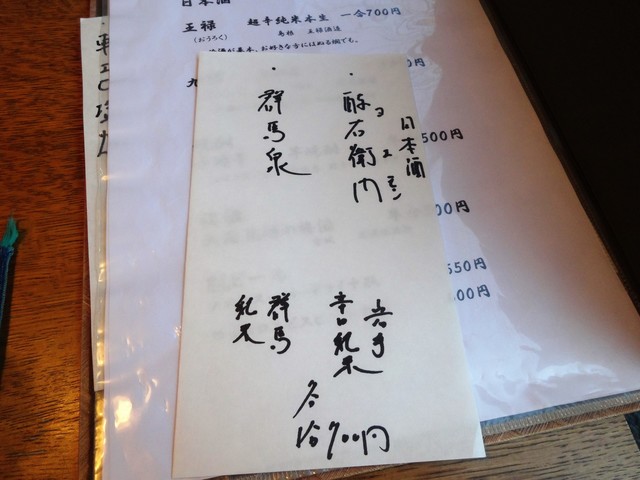 日本酒
・酔右衛門
ヨエモン
岩手
辛口純米
・群馬泉
群馬
純米
各
700円
日本酒
王祿 超辛純米本生 一合700円
(おうろく) 島根 王祿酒造
お好きな方にはぬる燗でも。
九
500円
00円
550円
00円